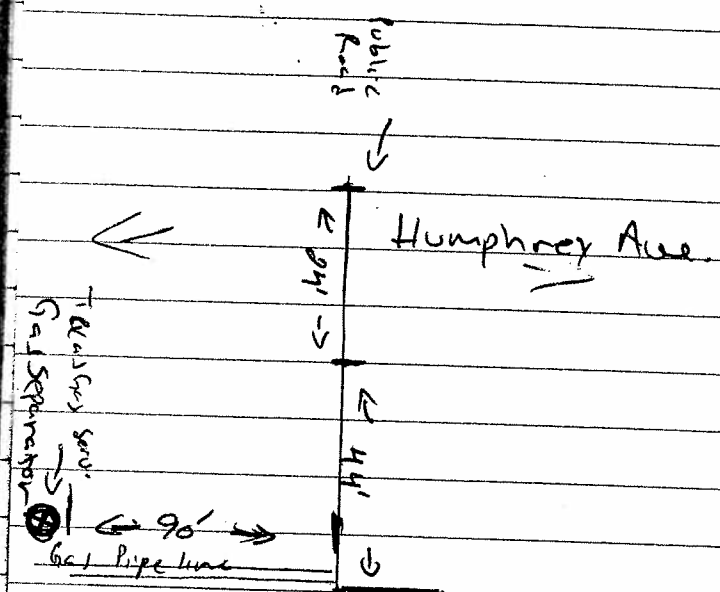 Public
Road
Humphrey Ave.
44'
Texas Gas Serv.
Gas Separator
90'
Gas Pipe line